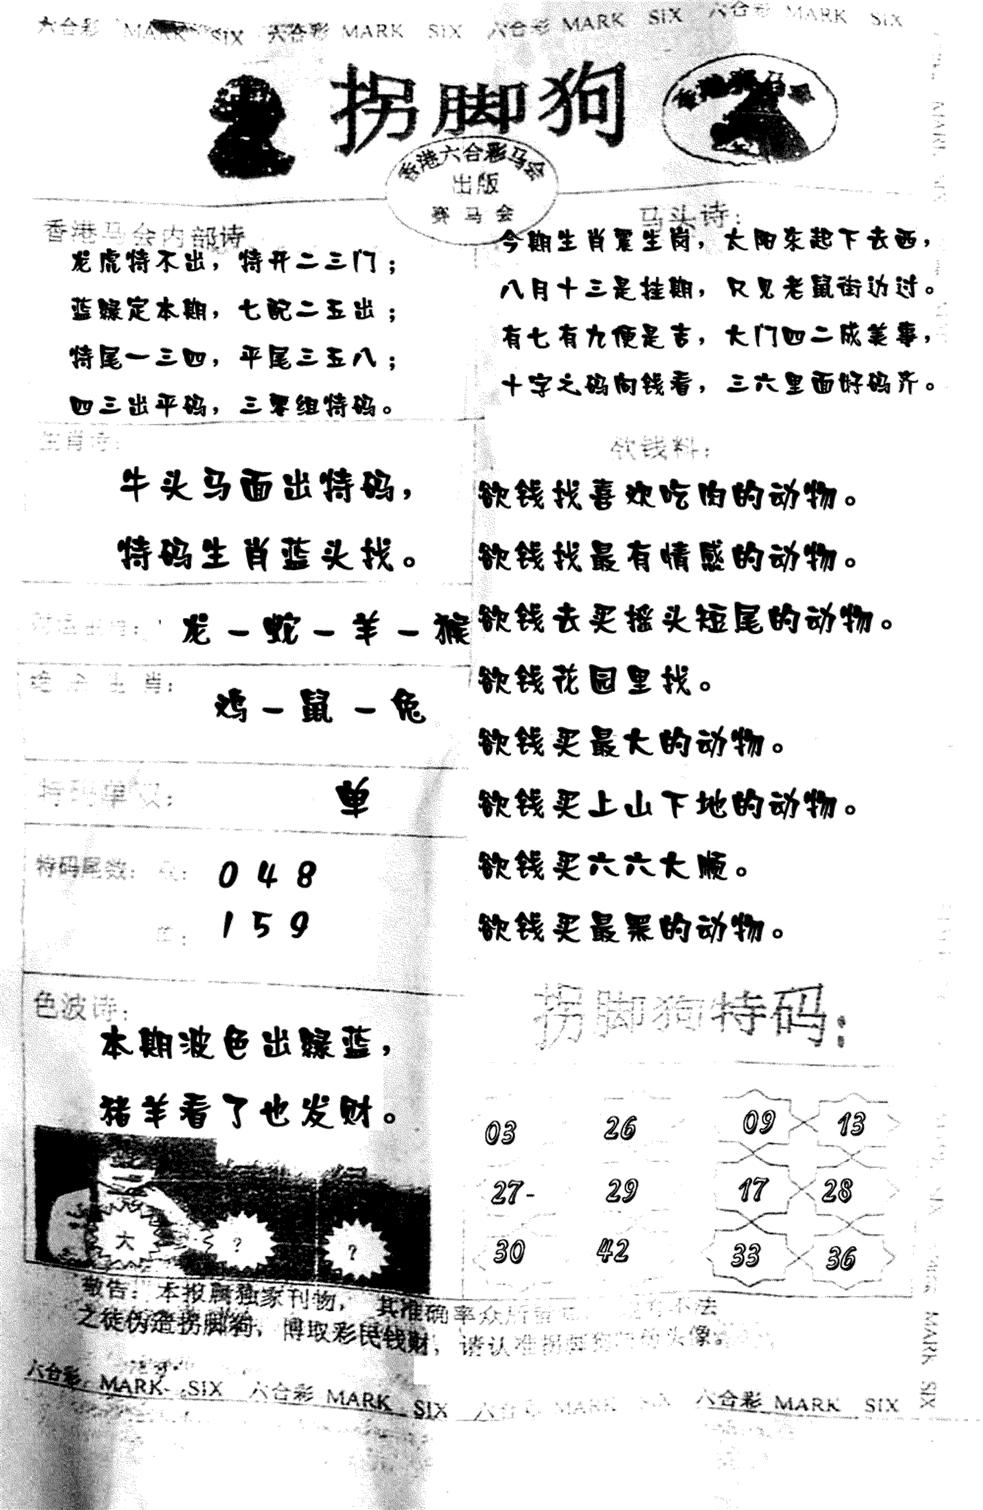 六合彩 MARK SIX 六合彩 MARK SIX 六合彩 MARK SIX 六合彩 MARK SIX
拐脚狗
香港赛马会
香港六合彩马会
出版
赛马会
香港马会内部诗
龙虎特不出，特开二三门；
蓝绿定本期，七配二五出；
特尾一三四，平尾三五八；
四三出平码，三零组特码。
马头诗：
今期生肖置生岗，太阳东起下去西，
八月十三是挂期，只见老鼠街边过。
有七有九便是吉，大门四二成美事，
十字之码向钱看，三六里面好码齐。
生肖诗：
牛头马面出特码，
特码生肖蓝头找。
龙－蛇－羊－猴
生肖：
鸡－鼠－兔
特码单双：
单
特码尾数：双：048
单：159
色波诗：
本期波色出绿蓝，
猪羊看了也发财。
大 ? ?
欲钱料：
欲钱找喜欢吃肉的动物。
欲钱找最有情感的动物。
欲钱去买摇头短尾的动物。
欲钱花园里找。
欲钱买最大的动物。
欲钱买上山下地的动物。
欲钱买六六大顺。
欲钱买最黑的动物。
拐脚狗特码：
03 26 09 13
27- 29 17 28
30 42 33 36
敬告：本报属独家刊物，其准确率众所 不法
之徒伪造拐脚狗，博取彩民钱财，请认准拐脚狗 头像
六合彩 MARK SIX 六合彩 MARK SIX 六合彩 MARK SIX 六合彩 MARK SIX
MARK SIX